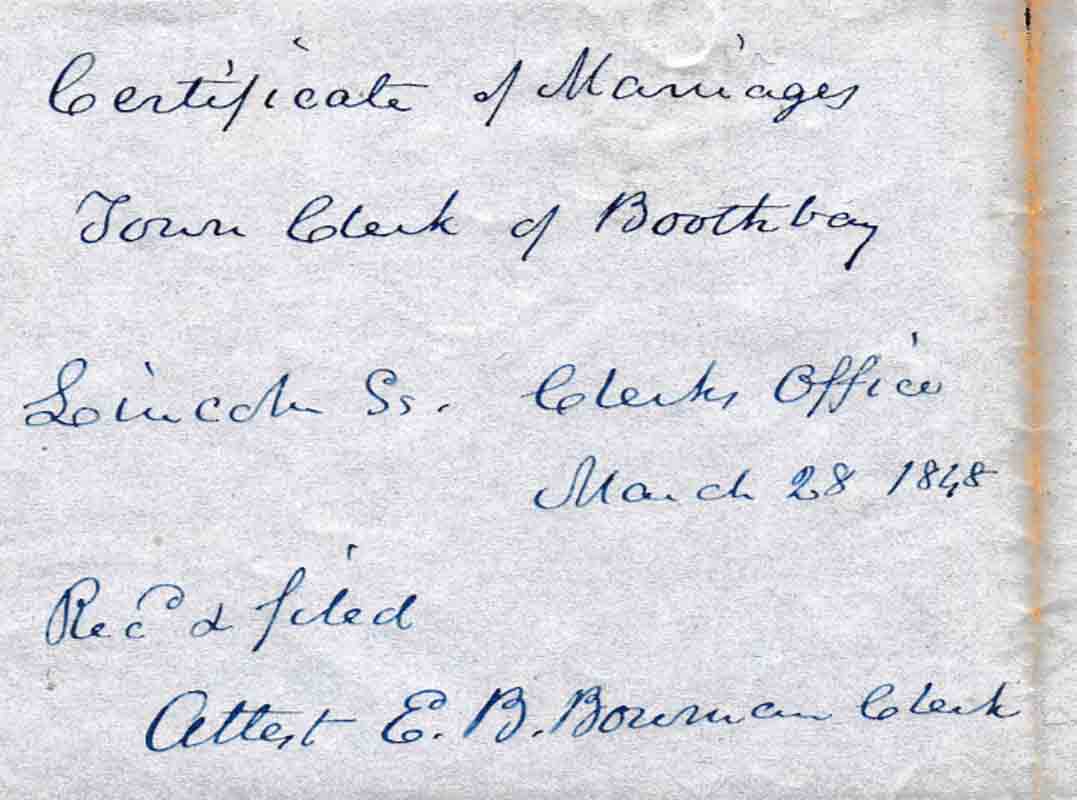 Certificate of Marriages
Town Clerk of Boothbay
Lincoln Ss. Clerks Office
March 28 1848
Recd & filed
Attest E. B. Bowman Clerk